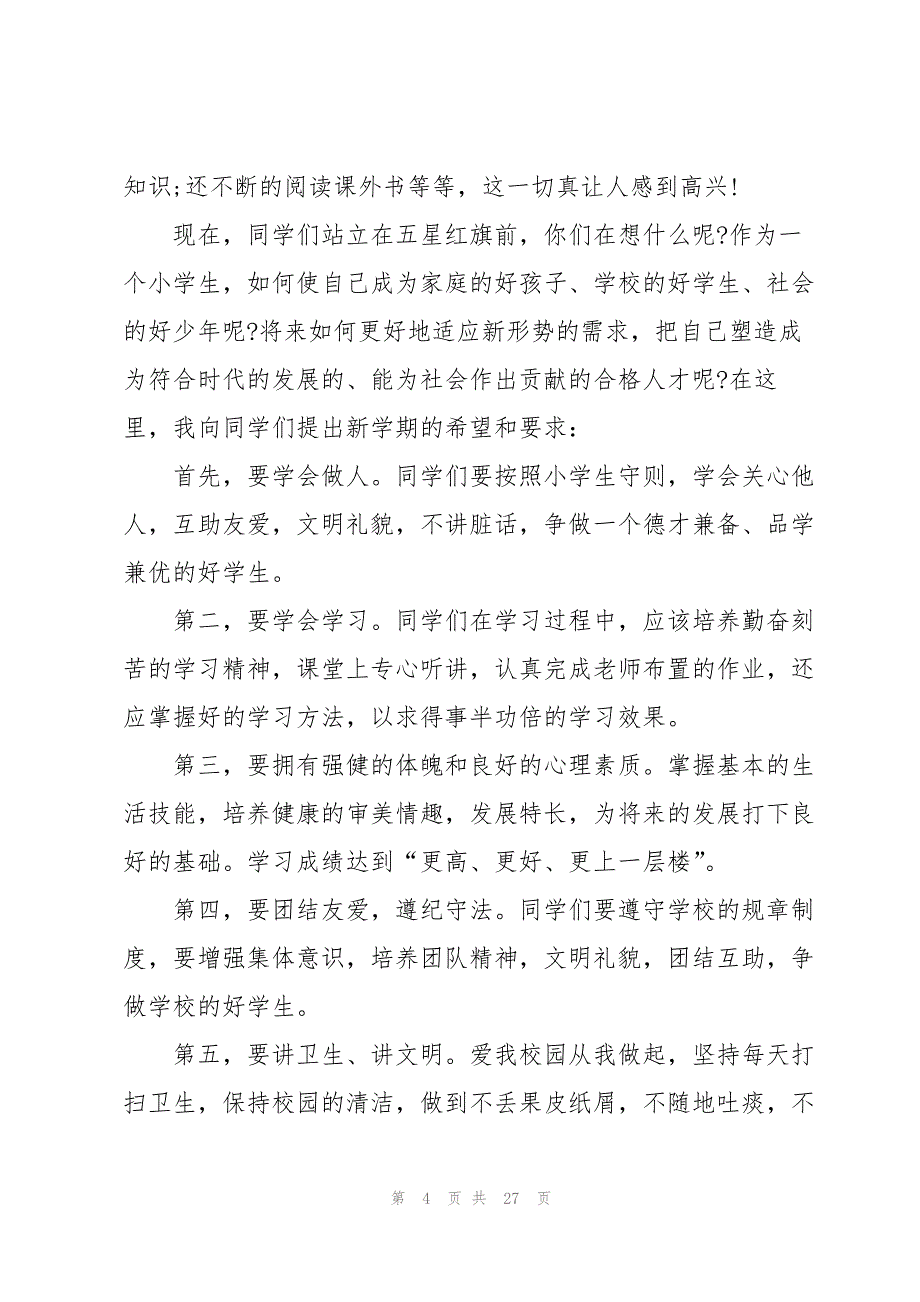 知识;还不断的阅读课外书等等，这一切真让人感到高兴!
现在，同学们站立在五星红旗前，你们在想什么呢?作为一
个小学生，如何使自己成为家庭的好孩子、学校的好学生、社会
的好少年呢?将来如何更好地适应新形势的需求，把自己塑造成
为符合时代的发展的、能为社会作出贡献的合格人才呢?在这
里，我向同学们提出新学期的希望和要求：
首先，要学会做人。同学们要按照小学生守则，学会关心他
人，互助友爱，文明礼貌，不讲脏话，争做一个德才兼备、品学
兼优的好学生。
第二，要学会学习。同学们在学习过程中，应该培养勤奋刻
苦的学习精神，课堂上专心听讲，认真完成老师布置的作业，还
应掌握好的学习方法，以求得事半功倍的学习效果。
第三，要拥有强健的体魄和良好的心理素质。掌握基本的生
活技能，培养健康的审美情趣，发展特长，为将来的发展打下良
好的基础。学习成绩达到“更高、更好、更上一层楼”。
第四，要团结友爱，遵纪守法。同学们要遵守学校的规章制
度，要增强集体意识，培养团队精神，文明礼貌，团结互助，争
做学校的好学生。
第五，要讲卫生、讲文明。爱我校园从我做起，坚持每天打
扫卫生，保持校园的清洁，做到不丢果皮纸屑，不随地吐痰，不
第 4 页 共 27 页